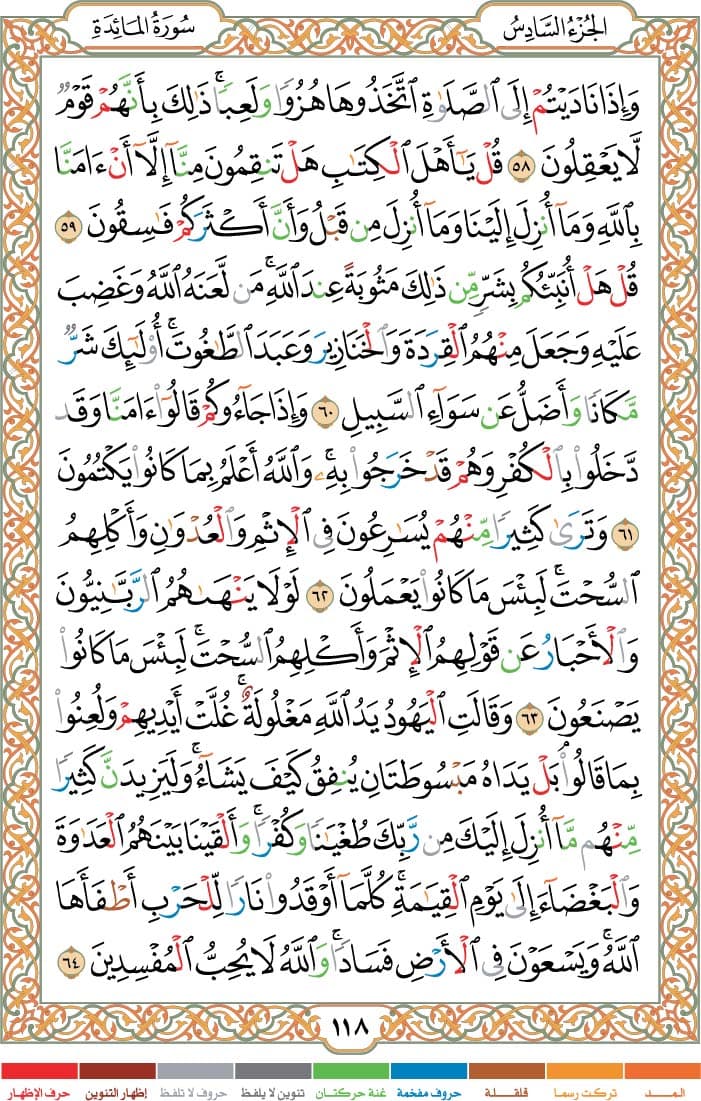 الجُزْءُ السَّادِسُ
سُورَةُ المَائِدَةِ
وَإِذَا نَادَيْتُمْ إِلَى الصَّلَوٰةِ ٱتَّخَذُوهَا هُزُوًا وَلَعِبًا ۚ ذَٰلِكَ بِأَنَّهُمْ قَوْمٌ
لَّا يَعْقِلُونَ ٥٨ قُلْ يَٰٓأَهْلَ ٱلْكِتَٰبِ هَلْ تَنقِمُونَ مِنَّآ إِلَّآ أَنْ ءَامَنَّا
بِٱللَّهِ وَمَآ أُنزِلَ إِلَيْنَا وَمَآ أُنزِلَ مِن قَبْلُ وَأَنَّ أَكْثَرَكُمْ فَٰسِقُونَ ٥٩
قُلْ هَلْ أُنَبِّئُكُم بِشَرٍّ مِّن ذَٰلِكَ مَثُوبَةً عِندَ ٱللَّهِ ۚ مَن لَّعَنَهُ ٱللَّهُ وَغَضِبَ
عَلَيْهِ وَجَعَلَ مِنْهُمُ ٱلْقِرَدَةَ وَٱلْخَنَازِيرَ وَعَبَدَ ٱلطَّٰغُوتَ ۚ أُو۟لَٰٓئِكَ شَرٌّ
مَّكَانًا وَأَضَلُّ عَن سَوَآءِ ٱلسَّبِيلِ ٦٠ وَإِذَا جَآءُوكُمْ قَالُوٓا۟ ءَامَنَّا وَقَد
دَّخَلُوا۟ بِٱلْكُفْرِ وَهُمْ قَدْ خَرَجُوا۟ بِهِۦ ۚ وَٱللَّهُ أَعْلَمُ بِمَا كَانُوا۟ يَكْتُمُونَ
٦١ وَتَرَىٰ كَثِيرًا مِّنْهُمْ يُسَٰرِعُونَ فِى ٱلْإِثْمِ وَٱلْعُدْوَٰنِ وَأَكْلِهِمُ
ٱلسُّحْتَ ۚ لَبِئْسَ مَا كَانُوا۟ يَعْمَلُونَ ٦٢ لَوْلَا يَنْهَىٰهُمُ ٱلرَّبَّٰنِيُّونَ
وَٱلْأَحْبَارُ عَن قَوْلِهِمُ ٱلْإِثْمَ وَأَكْلِهِمُ ٱلسُّحْتَ ۚ لَبِئْسَ مَا كَانُوا۟
يَصْنَعُونَ ٦٣ وَقَالَتِ ٱلْيَهُودُ يَدُ ٱللَّهِ مَغْلُولَةٌ ۚ غُلَّتْ أَيْدِيهِمْ وَلُعِنُوا۟
بِمَا قَالُوا۟ ۘ بَلْ يَدَاهُ مَبْسُوطَتَانِ يُنفِقُ كَيْفَ يَشَآءُ ۚ وَلَيَزِيدَنَّ كَثِيرًا
مِّنْهُم مَّآ أُنزِلَ إِلَيْكَ مِن رَّبِّكَ طُغْيَٰنًا وَكُفْرًا ۚ وَأَلْقَيْنَا بَيْنَهُمُ ٱلْعَدَٰوَةَ
وَٱلْبَغْضَآءَ إِلَىٰ يَوْمِ ٱلْقِيَٰمَةِ ۚ كُلَّمَآ أَوْقَدُوا۟ نَارًا لِّلْحَرْبِ أَطْفَأَهَا
ٱللَّهُ ۚ وَيَسْعَوْنَ فِى ٱلْأَرْضِ فَسَادًا ۚ وَٱللَّهُ لَا يُحِبُّ ٱلْمُفْسِدِينَ ٦٤
١١٨
المــــد تركت رسما قلقــلة حروف مفخمة غنة حركتان تنوين لا يلفظ حروف لا تلفظ إظهار التنوين حرف الإظهار